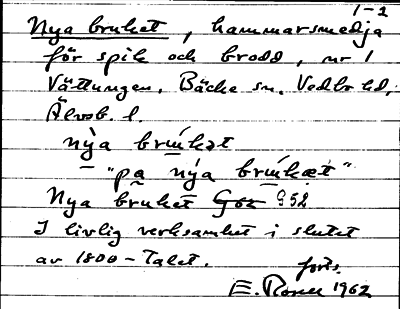 1-2
Nya bruket, hammarsmedja
för spik och brodd, nr 1
Vättungen. Bäcke sn. Vedbo hd,
Älvsb. l.
nỳa brúıkət
"pa nýa brúıkæt"
Nya bruket Göz G52
I livlig verksamhet i slutet
av 1800-talet.
forts.
E. 1962